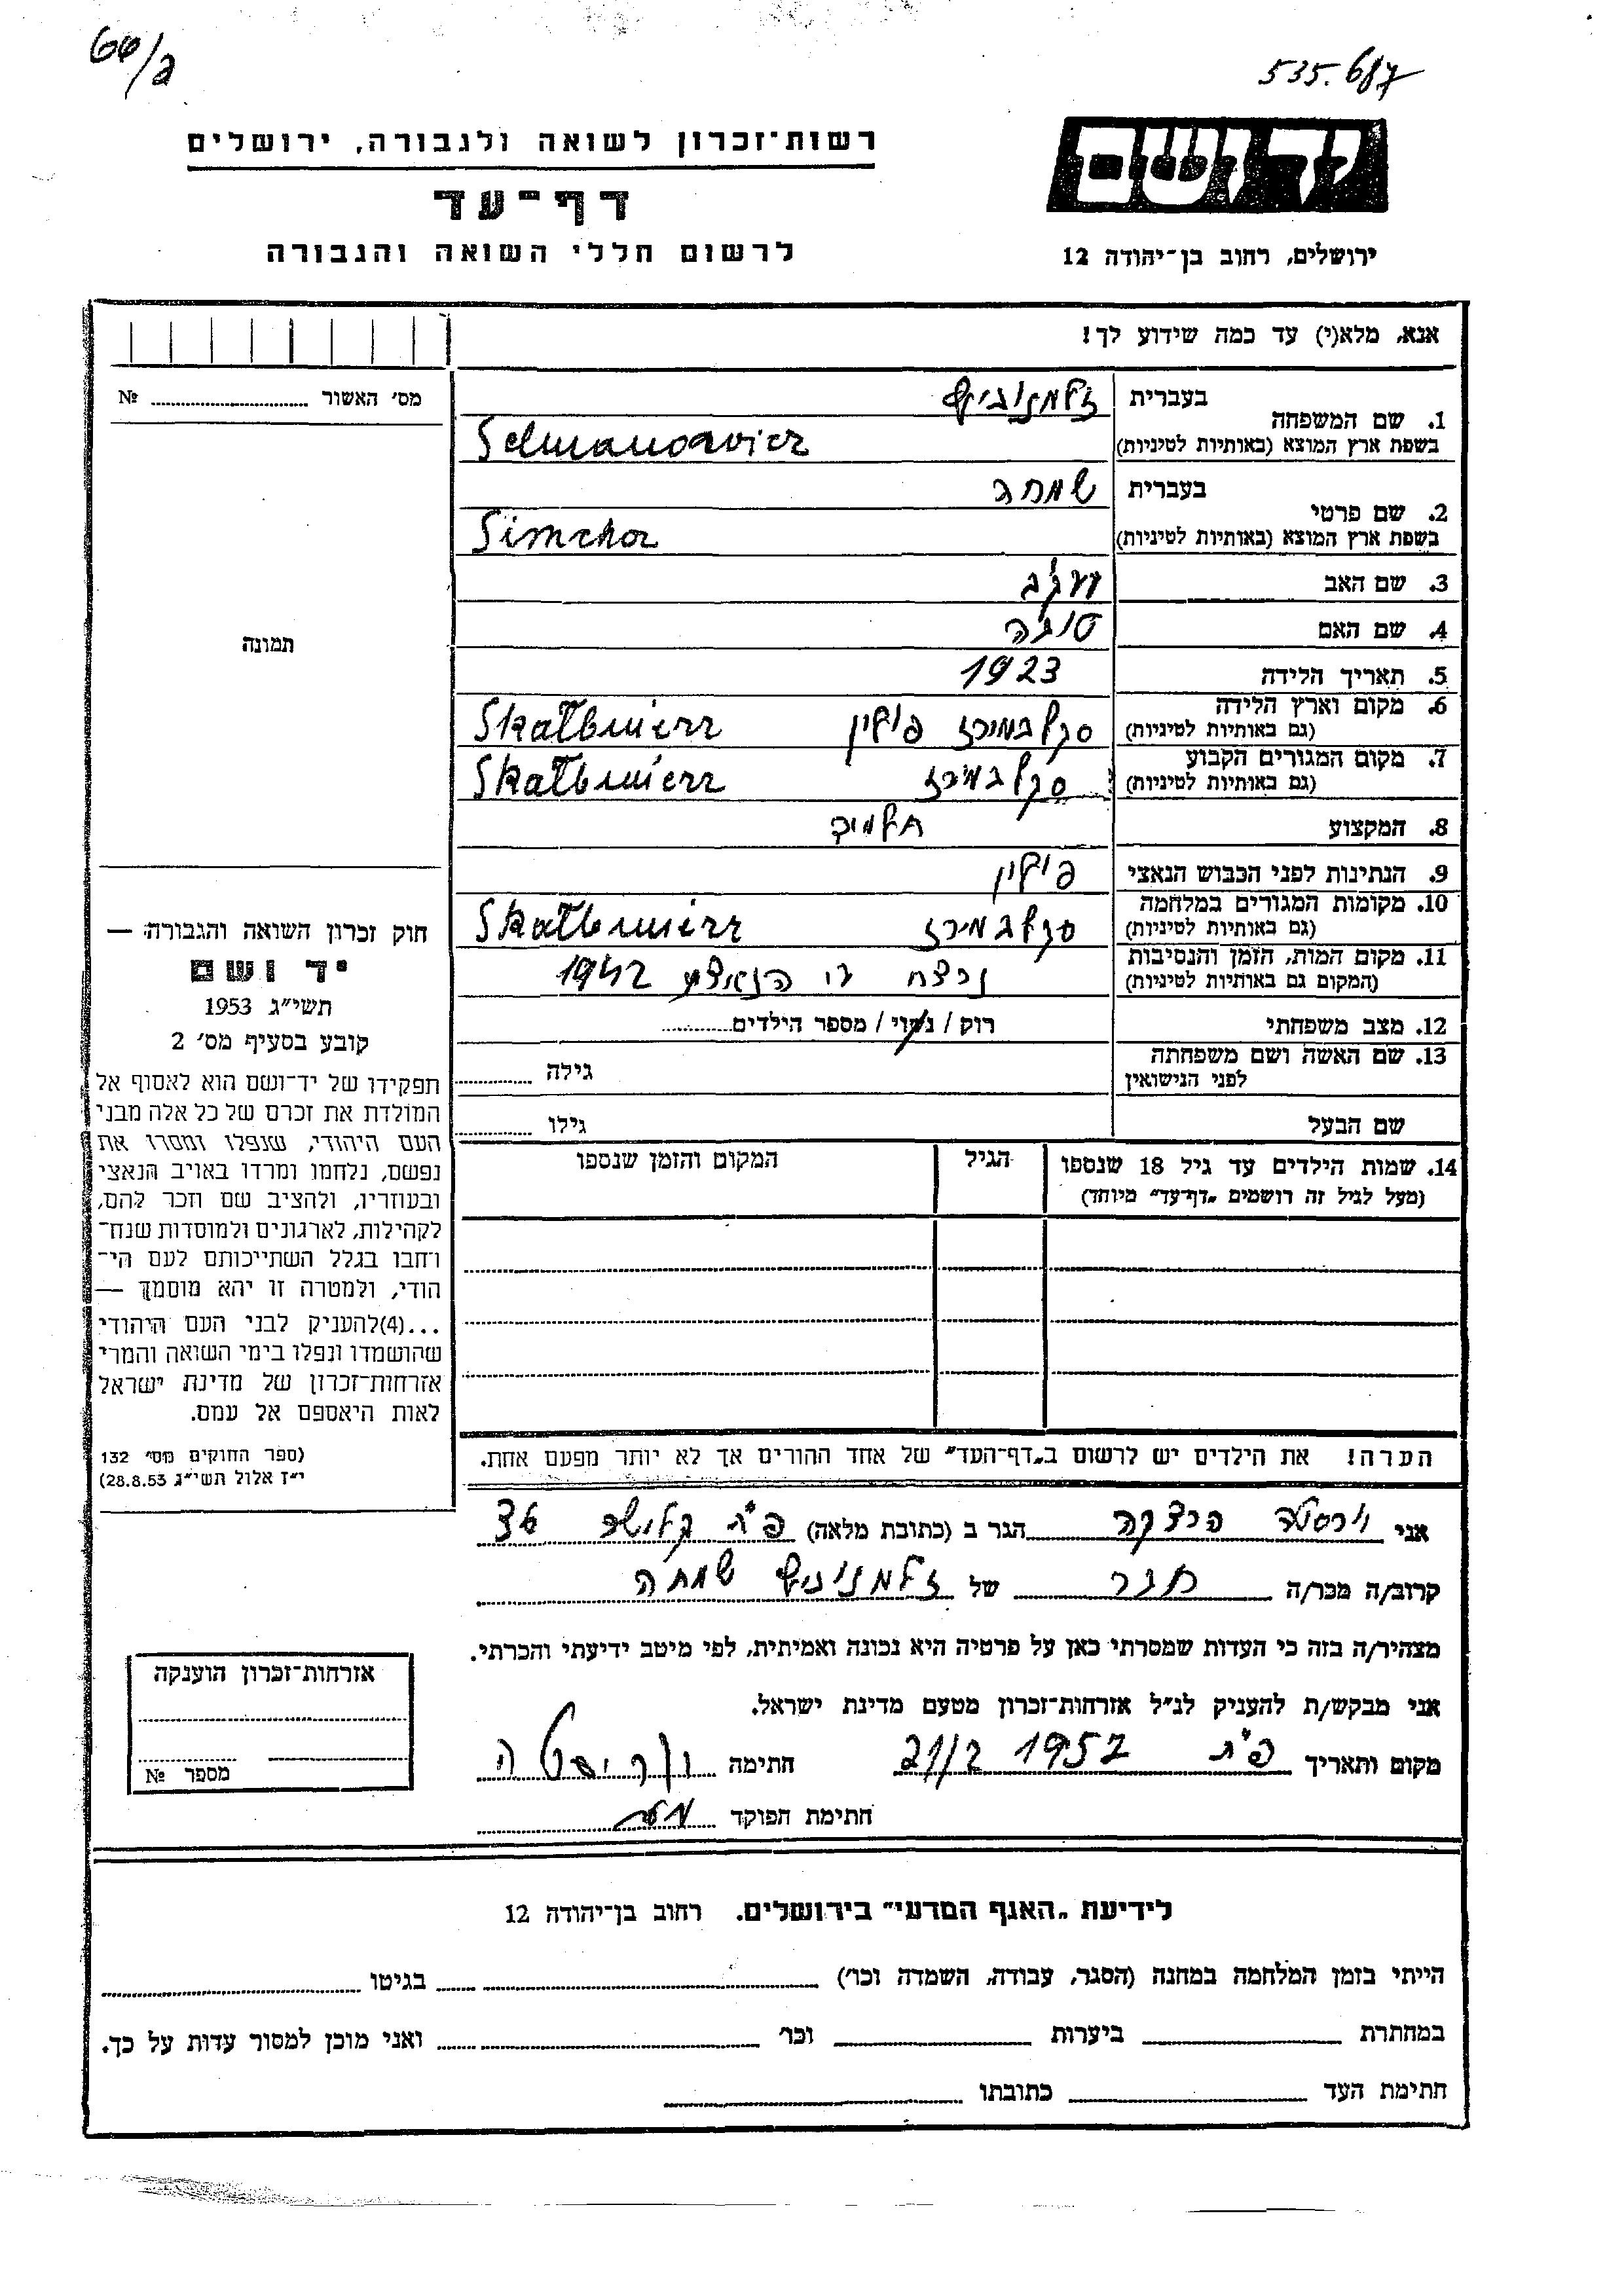 535.687
רשות־זכרון לשואה ולגבורה, ירושלים
דף־עד
לרשום חללי השואה והגבורה
ידושם
ירושלים, רחוב בן־יהודה 12
אנא, מלא(י) עד כמה שידוע לך!
מס׳ האשור № ............
תמונה
חוק זכרון השואה והגבורה —
יד ושם
תשי״ג 1953
קובע בסעיף מס׳ 2
תפקידו של יד־ושם הוא לאסוף אל
המולדת את זכרם של כל אלה מבני
העם היהודי, שנפלו ומסרו את
נפשם, נלחמו ומרדו באויב הנאצי
ובעוזריו, ולהציב שם וזכר להם,
לקהילות, לארגונים ולמוסדות שנח־
רחבו בגלל השתייכותם לעם הי־
הודי, ולמטרה זו יהא מוסמך —
...(4)להעניק לבני העם היהודי
שהושמדו ונפלו בימי השואה והמרי
אזרחות־זכרון של מדינת ישראל
לאות היאספם אל עמם.
(ספר החוקים מס׳ 132
י״ז אלול תשי״ג 28.8.53)
1. שם המשפחה בעברית זלמנוביץ
בשפת ארץ המוצא (באותיות לטיניות) Selmanowicz
2. שם פרטי בעברית שמחה
בשפת ארץ המוצא (באותיות לטיניות) Simcha
3. שם האב יעקב
4. שם האם טובה
5. תאריך הלידה 1923
6. מקום וארץ הלידה (גם באותיות לטיניות) סקלבמירז פולין Skalbmierz
7. מקום המגורים הקבוע (גם באותיות לטיניות) סקלבמירז Skalbmierz
8. המקצוע תלמיד
9. הנתינות לפני הכבוש הנאצי פולין
10. מקומות המגורים במלחמה (גם באותיות לטיניות) סקלבמירז Skalbmierz
11. מקום המות, הזמן והנסיבות (המקום גם באותיות לטיניות) נרצח ע״י הנאצים 1942
12. מצב משפחתי רוק / נשוי / מספר הילדים............
13. שם האשה ושם משפחתה לפני הנישואין גילה ............
שם הבעל גילו ............
14. שמות הילדים עד גיל 18 שנספו הגיל המקום והזמן שנספו
(מעל לגיל זה רושמים „דף־עד״ מיוחד)
הערה! את הילדים יש לרשום ב„דף־העד״ של אחד ההורים אך לא יותר מפעם אחת.
אני הרצקה הגר ב (כתובת מלאה) פ״ת
קרוב/ה מכר/ה חבר של זלמנוביץ שמחה
מצהיר/ה בזה כי העדות שמסרתי כאן על פרטיה היא נכונה ואמיתית, לפי מיטב ידיעתי והכרתי.
אני מבקש/ת להעניק לנ״ל אזרחות־זכרון מטעם מדינת ישראל.
מקום ותאריך פ״ת 21/2 1957 חתימה
חתימת הפוקד
אזרחות־זכרון הוענקה
מספר №
לידיעת „האגף המדעי״ בירושלים. רחוב בן־יהודה 12
הייתי בזמן המלחמה במחנה (הסגר, עבודה, השמדה וכו׳) בגיטו
במחתרת ביערות וכו׳ ואני מוכן למסור עדות על כך.
חתימת העד כתובתו